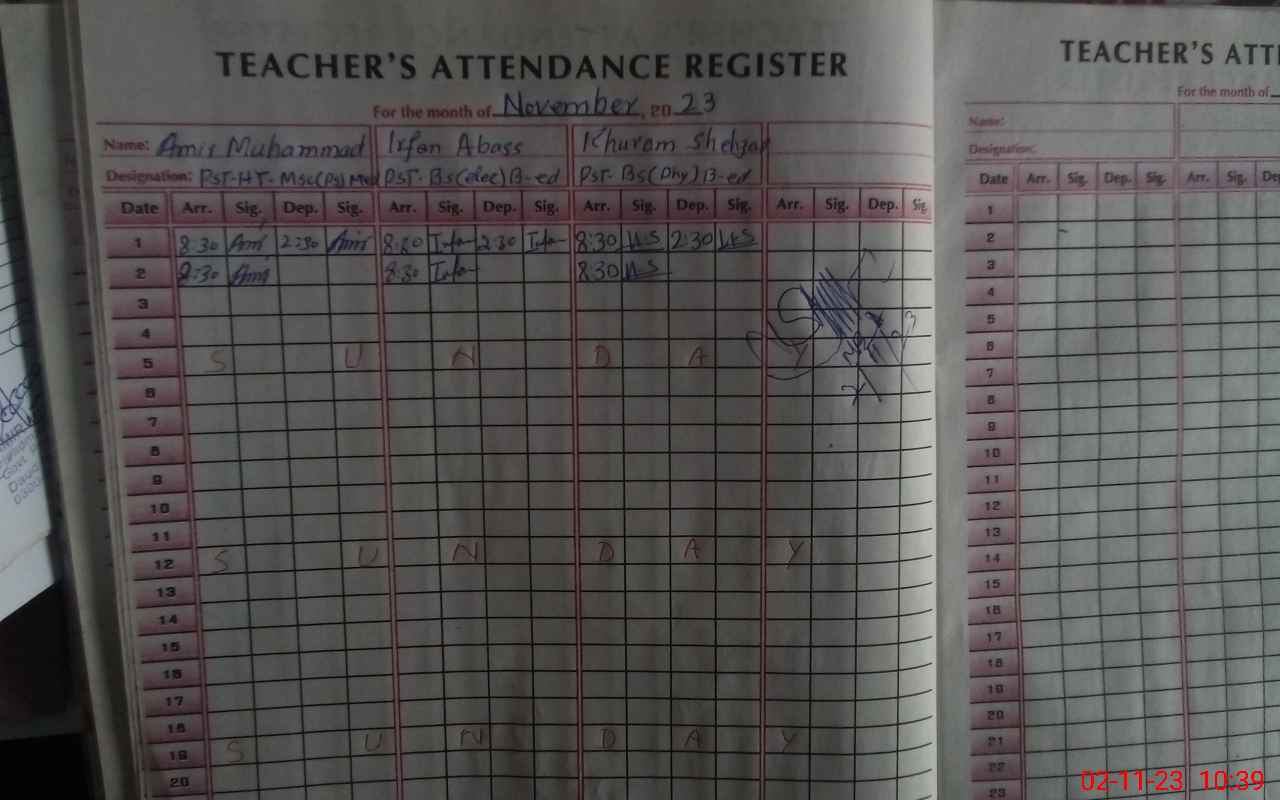 TEACHER'S ATTENDANCE REGISTER
For the month of November, 20 23
Name: Amir Muhammad Irfan Abass Khuram Shehzad
Designation: PST-HT- Msc(Ps) PST- Bs(elec) B-ed PST- Bs(Phy) B-ed
Date Arr. Sig. Dep. Sig. Arr. Sig. Dep. Sig. Arr. Sig. Dep. Sig. Arr. Sig. Dep. Sig.
1 8:30 2:30 8:30 2:30 8:30 2:30
2 8:30 8:30 8:30
3
4
5 S U N D A Y
6
7
8
9
10
11
12 S U N D A Y
13
14
15
16
17
18
19 S U N D A Y
20
TEACHER'S ATT
For the month of
Name:
Designation:
Date Arr. Sig. Dep. Sig. Arr. Sig.
1
2
3
4
5
6
7
8
9
10
11
12
13
14
15
16
17
18
19
20
21
22
23
02-11-23 10:39